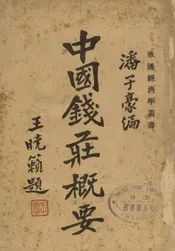 華通經濟學叢書
潘子豪編
中國錢莊概要
王曉籟題